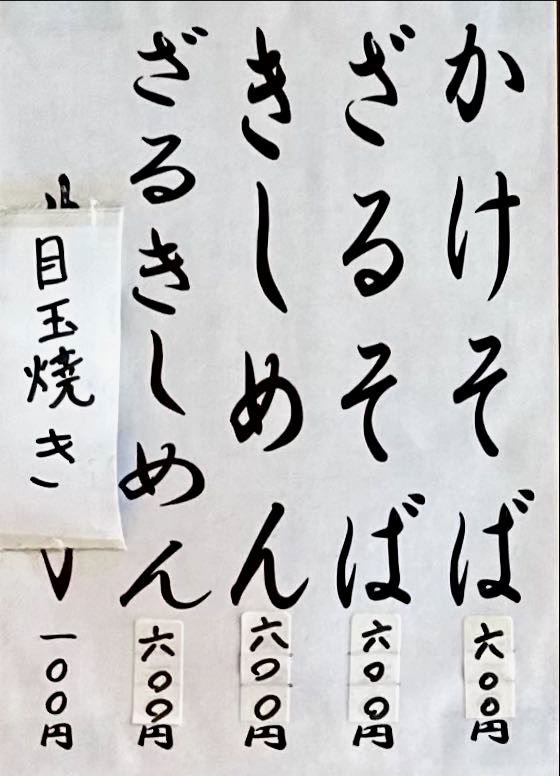 かけそば 六〇〇円
ざるそば 六〇〇円
きしめん 六〇〇円
ざるきしめん 六〇〇円
目玉焼き 一〇〇円